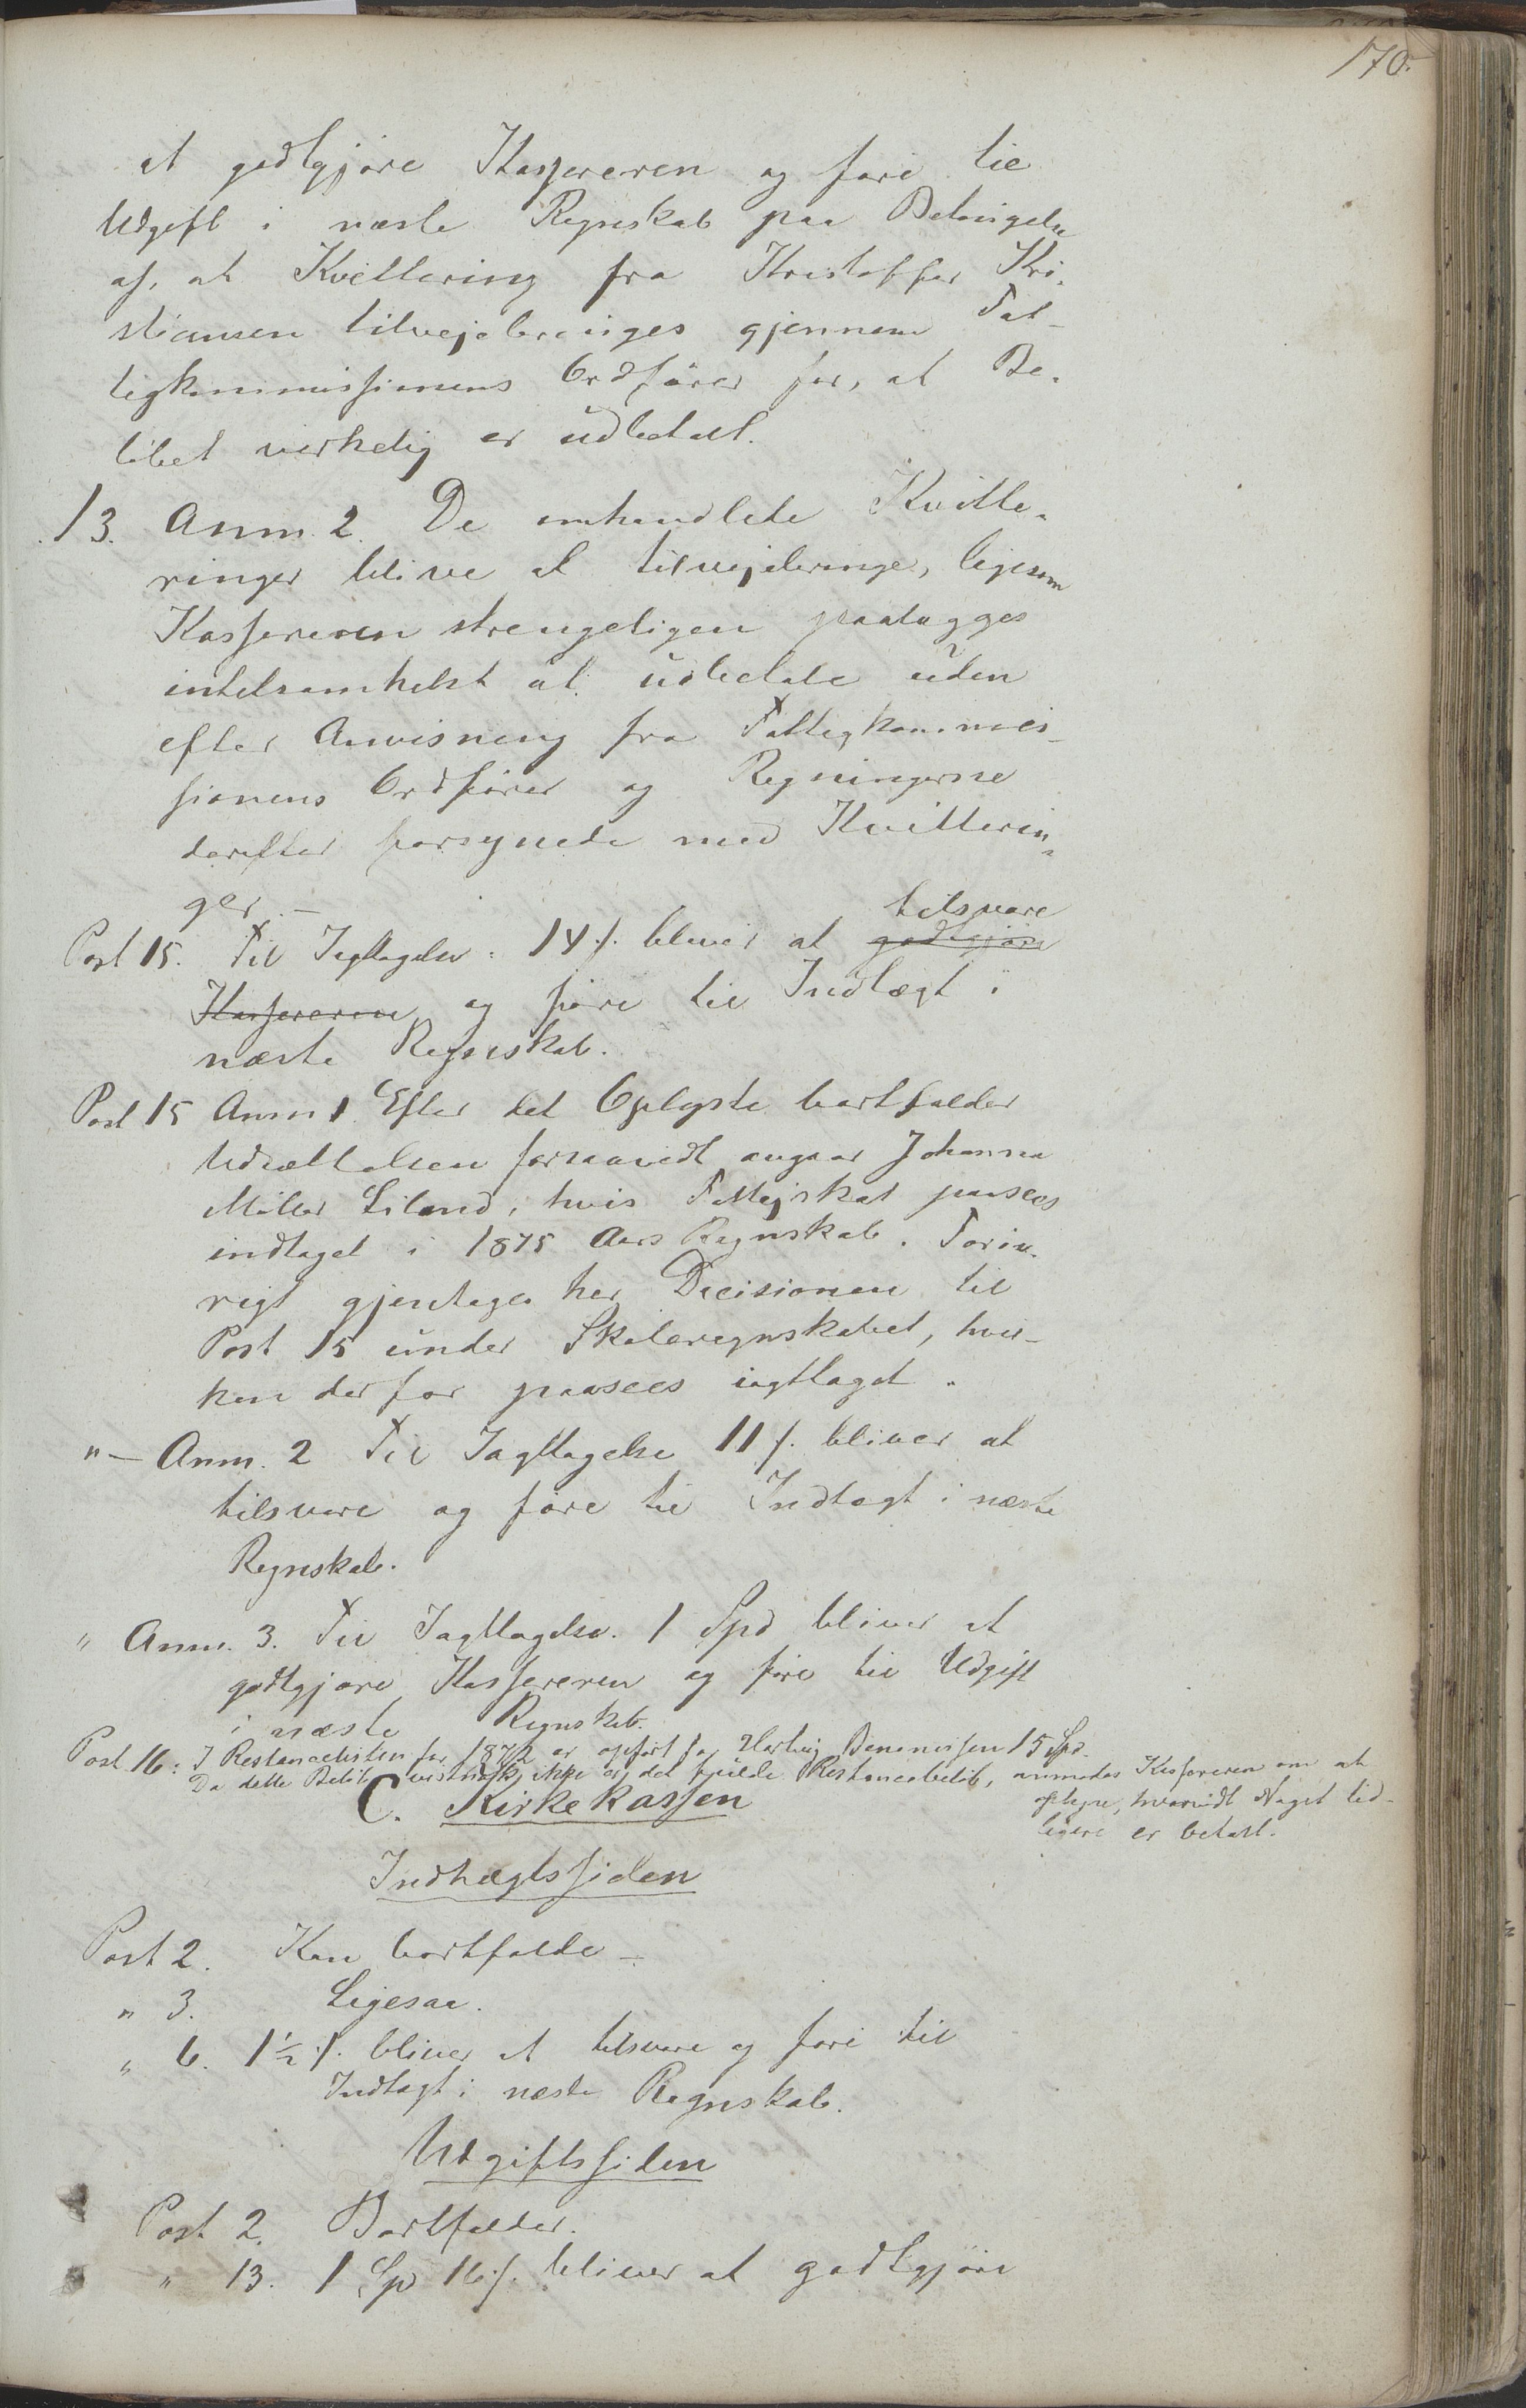 170.
at godtgjøre Kassereren og føre til
Udgift i næste Regnskab paa Betingelse
af, at Kvittering fra Kristoffer Kri-
stiansen tilvejebringes gjennem Fat-
tigkommissionens Ordfører for, at Be-
løbet virkelig er udbetalt.
13. Anm. 2. De omhandlede Kvitte-
ringer blive at tilvejebringe, ligesom
Kassereren strengeligen paalægges
intetsomhelst at udbetale uden
efter Anvisning fra Fattigkommis-
sionens Ordfører og Regningerne
derefter forsynede med Kvitterin-
ger. -
tilsvare
Post 15. Til Iagttagelse. 14 s. bliver at godtgjøre
Kassereren og føre til Indtægt i
næste Regnskab.
Post 15 Anm 1. Efter det Oplyste bortfalder
Udsættelsen forsaavidt angaar Johanna
Møller Liland, hvis Fattigskat paasees
indtaget i 1875 Aars Regnskab. Forøv-
rigt gjentages her Decisionen til
Post 15 under Skoleregnskabet, hvil-
ken derfor paasees iagttaget.
" - Anm. 2 Til Iagttagelse 11 s. bliver at
tilsvare og føre til Indtægt i næste
Regnskab.
" Anm. 3. Til Iagttagelse. 1 Spd bliver at
godtgjøre Kassereren og føre til Udgift
i næste Regnskab.
Post 16: I Restancelisten for 1872 er opført for Hartvig 15 Spd.
Da dette Beløb vistnok ikke er det fulde Restancebeløb, anmodes Kassereren om at
oplyse, hvorvidt Noget tid-
ligere er betalt.
C. Kirkekassen
Indtægtssiden
Post 2. Kan bortfalde -
" 3. Ligesaa.
" 6. 1½ s. bliver at tilsvare og føre til
Indtægt i næste Regnskab.
Udgiftssiden
Post 2. Bortfalder.
" 13. 1 Sp 16 s. bliver at godtgjøre